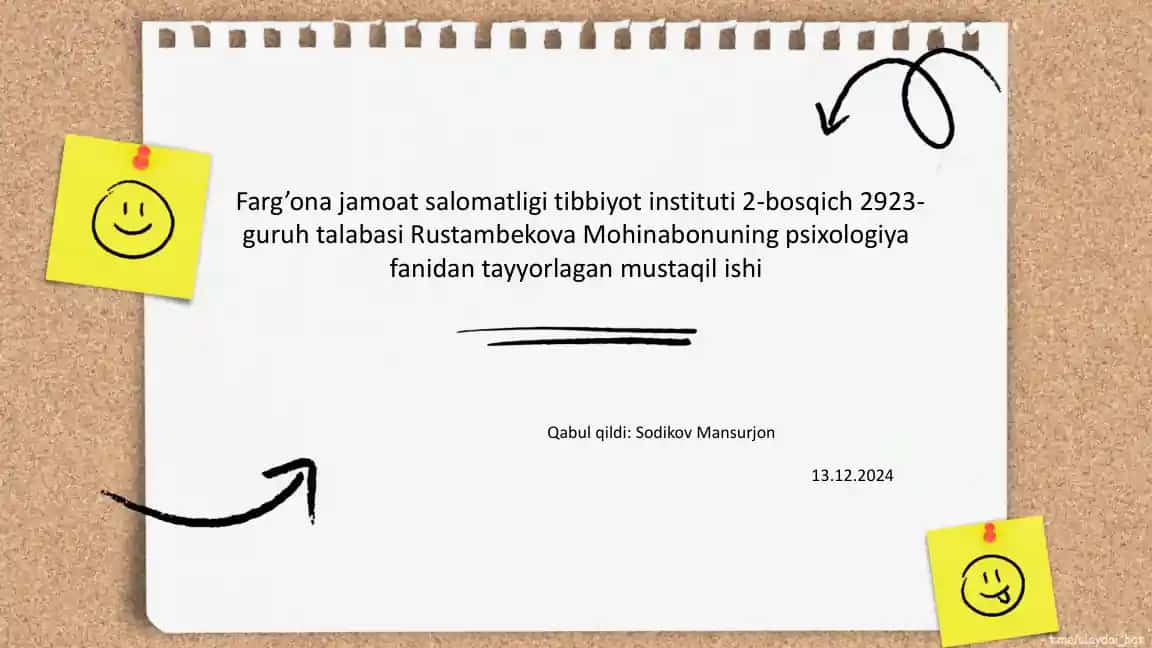 Farg’ona jamoat salomatligi tibbiyot instituti 2-bosqich 2923-
guruh talabasi Rustambekova Mohinabonuning psixologiya
fanidan tayyorlagan mustaqil ishi
Qabul qildi: Sodikov Mansurjon
13.12.2024